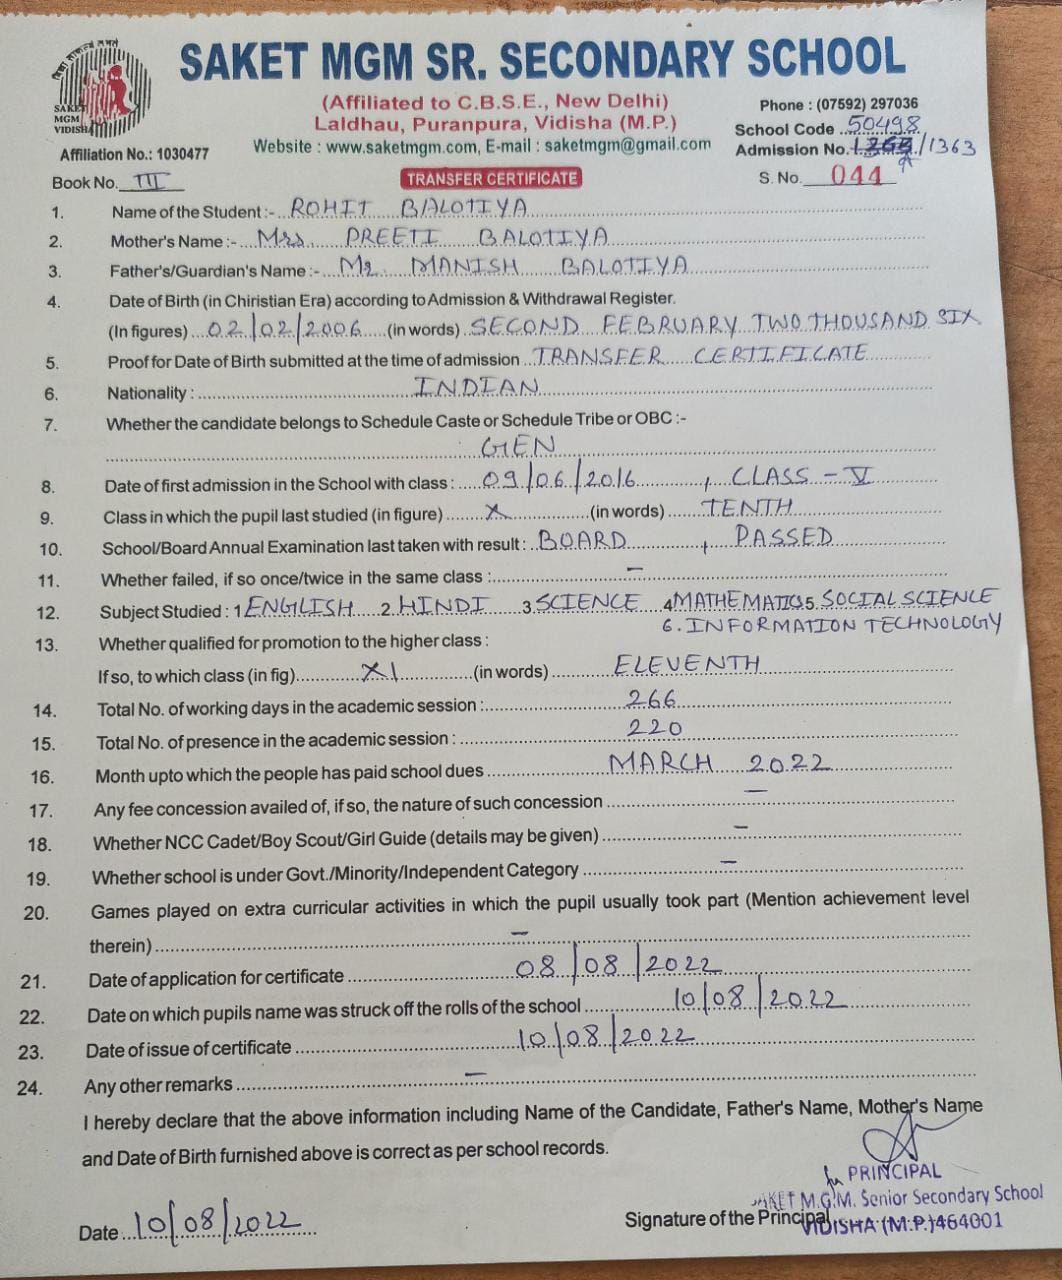 SAKET MGM SR. SECONDARY SCHOOL
SAKET
MGM
VIDISHA
(Affiliated to C.B.S.E., New Delhi)
Laldhau, Puranpura, Vidisha (M.P.)
Website : www.saketmgm.com, E-mail : saketmgm@gmail.com
Phone : (07592) 297036
School Code 50498
Affiliation No.: 1030477
Admission No. /1363
Book No. III
TRANSFER CERTIFICATE
S. No. 044
1. Name of the Student :- ROHIT BALOTIYA
2. Mother's Name :- Mrs. PREETI BALOTIYA
3. Father's/Guardian's Name :- Mr. MANISH BALOTIYA
4. Date of Birth (in Chiristian Era) according to Admission & Withdrawal Register.
(In figures) 02/02/2006 (in words) SECOND FEBRUARY TWO THOUSAND SIX
5. Proof for Date of Birth submitted at the time of admission TRANSFER CERTIFICATE
6. Nationality : INDIAN
7. Whether the candidate belongs to Schedule Caste or Schedule Tribe or OBC :-
GEN
8. Date of first admission in the School with class : 09/06/2016, CLASS - V
9. Class in which the pupil last studied (in figure) X (in words) TENTH
10. School/Board Annual Examination last taken with result : BOARD, PASSED
11. Whether failed, if so once/twice in the same class : -
12. Subject Studied : 1 ENGLISH 2. HINDI 3. SCIENCE 4 MATHEMATICS 5. SOCIAL SCIENCE
6. INFORMATION TECHNOLOGY
13. Whether qualified for promotion to the higher class :
If so, to which class (in fig) XI (in words) ELEVENTH
14. Total No. of working days in the academic session : 266
15. Total No. of presence in the academic session : 220
16. Month upto which the people has paid school dues MARCH 2022
17. Any fee concession availed of, if so, the nature of such concession -
18. Whether NCC Cadet/Boy Scout/Girl Guide (details may be given) -
19. Whether school is under Govt./Minority/Independent Category -
20. Games played on extra curricular activities in which the pupil usually took part (Mention achievement level
therein) -
21. Date of application for certificate 08/08/2022
22. Date on which pupils name was struck off the rolls of the school 10/08/2022
23. Date of issue of certificate 10/08/2022
24. Any other remarks -
I hereby declare that the above information including Name of the Candidate, Father's Name, Mother's Name
and Date of Birth furnished above is correct as per school records.
PRINCIPAL
SAKET M.G.M. Senior Secondary School
Date 10/08/2022
Signature of the Principal
VIDISHA (M.P.) 464001